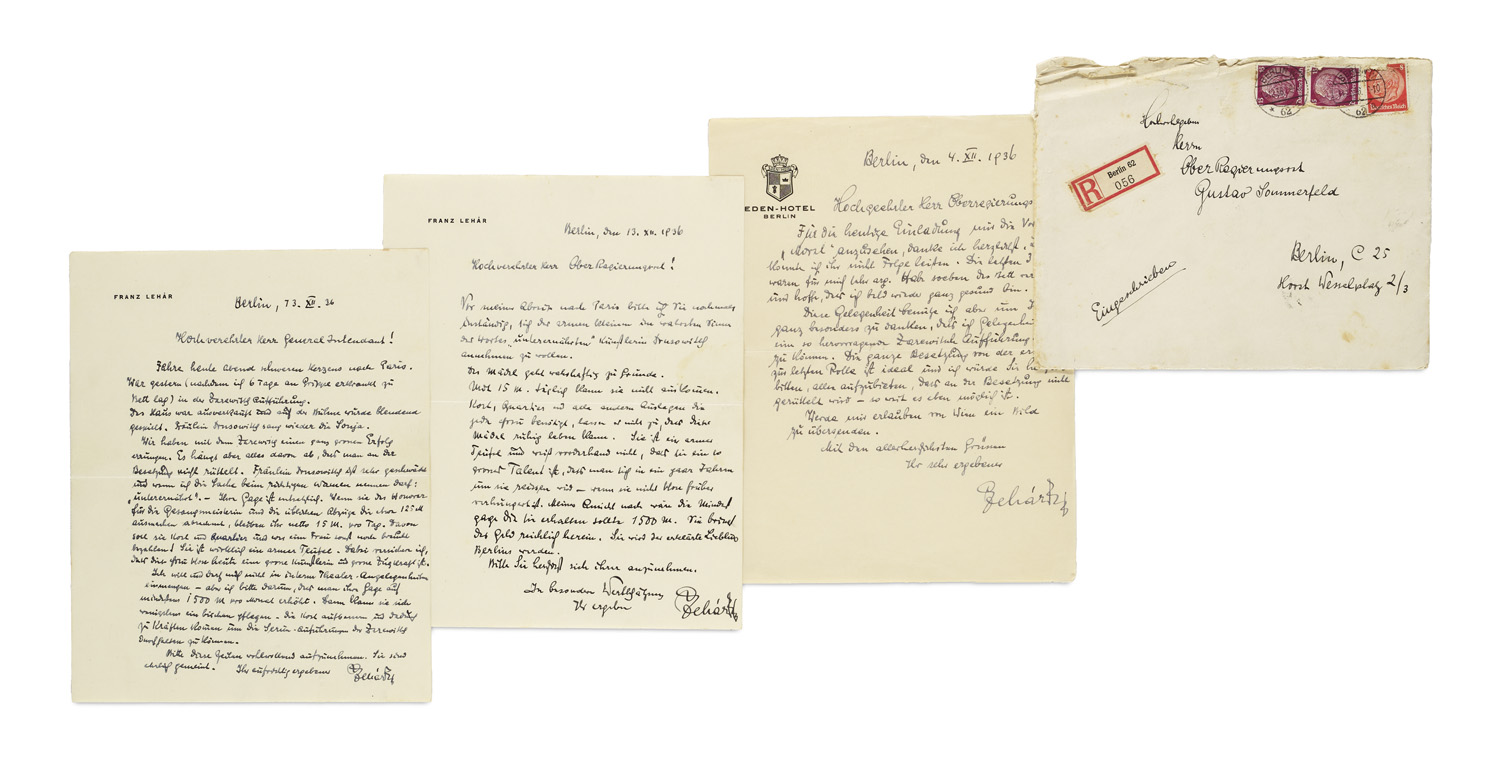 FRANZ LEHÁR
Berlin, 13. XII. 36
Hochverehrter Herr General Intendant!
Fahre heute abend schweren Herzens nach Paris.
War gestern (nachdem ich 6 Tage an Grippe erkrankt zu
Bett lag) in der Zarewitsch Aufführung.
Das Haus war ausverkauft und auf der Bühne wurde blendend
gespielt. Fräulein sang wieder die Sonja.
Wir haben mit dem Zarewitsch einen ganz grossen Erfolg
errungen. Es hängt aber alles davon ab, dass man an der
Besetzung nicht rüttelt. Fräulein ist sehr geschwächt
und wenn ich die Sache beim richtigen Namen nennen darf:
„unterernährt". – Ihre Gage ist entsetzlich. Wenn sie das Honorar
für die Gesangmeisterin und die üblichen Abzüge die etwa 125 M
ausmachen abrechnet, bleiben ihr netto 15 M. pro Tag. Davon
soll sie Kost und Quartier und was eine Frau sonst noch braucht
bezahlen! Sie ist wirklich ein armer Teufel. Dabei versichere ich,
dass diese Frau schon heute eine grosse Künstlerin und grosse Zugkraft ist.
Ich will und darf mich nicht in interne Theater-Angelegenheiten
einmengen – aber ich bitte darum, dass man ihre Gage auf
mindestens 1500 M pro Monat erhöht. Dann kann sie sich
wenigstens ein bischen pflegen. die Kost aufbessern und dadurch
zu Kräften kommen um die Serien-Aufführungen des Zarewitsch
durchhalten zu können.
Bitte diese Zeilen wohlwollend aufzunehmen. Sie sind
ehrlich gemeint. Ihr aufrichtig ergebener
Lehár
FRANZ LEHÁR
Berlin, den 13. XII. 1936
Hochverehrter Herr Ober Regierungsrat!
Vor meiner Abreise nach Paris bitte ich Sie nochmals
inständig, sich der armen kleinen im wahrsten Sinne
des Wortes „unterernährten" Künstlerin
annehmen zu wollen.
Das Mädel geht wahrhaftig zu Grunde.
Mit 15 M. täglich kann sie nicht auskommen.
Kost, Quartier und alle andern Auslagen die
jede Frau benötigt, lassen es nicht zu, dass dieses
Mädel ruhig leben kann. Sie ist ein armer
Teufel und weiss vorderhand nicht, dass sie ein so
grosses Talent ist, dass man sich in ein paar Jahren
um sie reissen wird – wenn sie nicht schon früher
verhungert ist. Meiner Ansicht nach wäre die Mindest
gage die sie erhalten sollte 1500 M. Sie bringt
das Geld reichlich herein. Sie wird der erklärte Liebling
Berlins werden.
Bitte Sie herzlichst sich ihrer anzunehmen.
In besonderer Wertschätzung
Ihr ergebener
Lehár
EDEN-HOTEL
BERLIN
Berlin, den 4. XII. 1936
Hochgeehrter Herr Oberregierungs
Für die heutige Einladung mir die Vor
anzusehen, danke ich herzlichst.
Konnte ich ihr nicht Folge leisten. Die letzten 3
waren für mich sehr arg. Hab soeben das Bett ver
und hoffe, dass ich bald wieder ganz gesund bin.
Diese Gelegenheit benütze ich aber um
ganz besonders zu danken, dass ich Gelegenheit
eine so hervorragende Zarewitsch Aufführung
zu können. Die ganze Besetzung von der er
zur letzten Rolle ist ideal und ich würde Sie
bitten, alles aufzubieten, dass an der Besetzung nicht
gerüttelt wird – so weit es eben möglich ist.
Werde mir erlauben von Wien ein Bild
zu übersenden.
Mit den allerherzlichsten Grüssen
Ihr sehr ergebener
Lehár
Hochwohlgeboren
Herrn
Ober Regierungsrat
Gustav Sommerfeld
Berlin, C 25
Horst Wesselplatz 2/3
Eingeschrieben
R
Berlin 62
056
Deutsches Reich
62